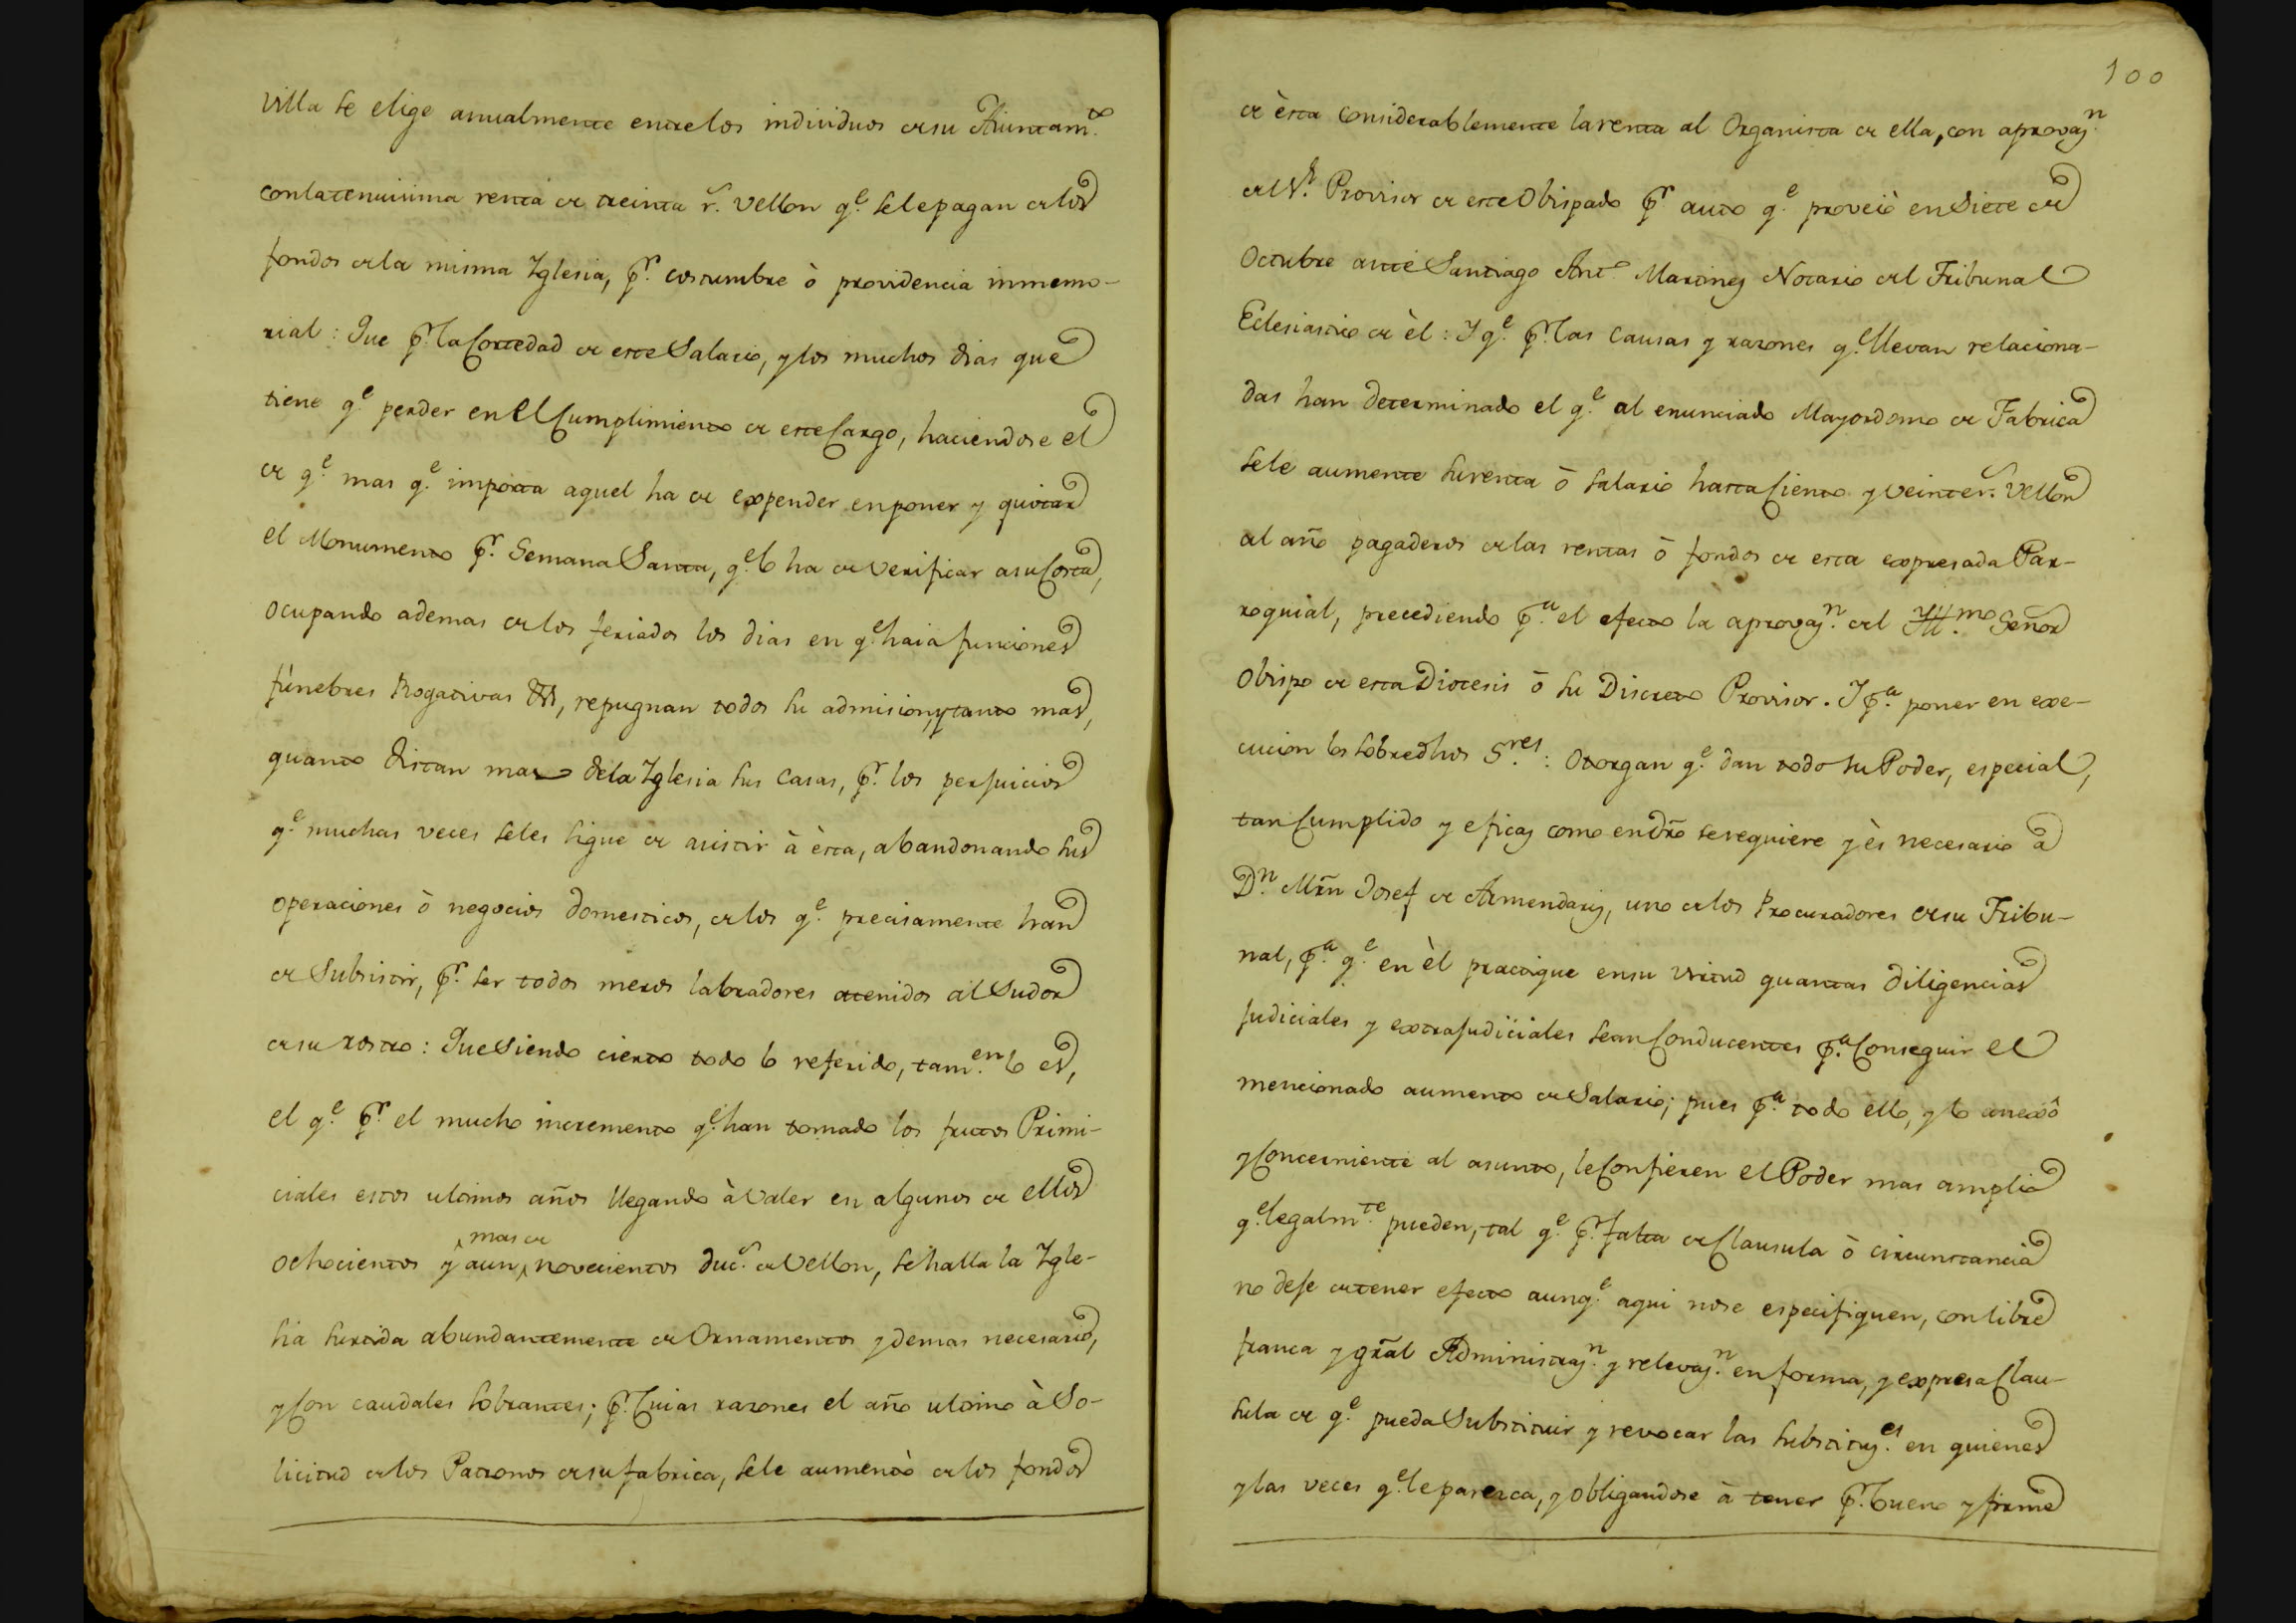 Villa se elige anualmente entre los individuos de su Aiuntam.to
con la tenuisima renta de treinta r.s vellon q.e se le pagan de los
fondos de la misma Yglesia, p.r costumbre ò providencia inmemo-
rial: Que p.r la Cortedad de este Salario, y los muchos dias que
tiene q.e perder en el Cumplimiento de este Cargo, haciendose el
de q.e mas q.e importa aquel ha de expender en poner y quitar
el Monumento p.r Semana Santa, q.e lo ha de verificar a su Costa,
ocupando ademas de los feriados los dias en q.e haia funciones
fúnebres Rogativas &a, repugnan todos su admision, y tanto mas,
quanto distan mas de la Yglesia sus Casas, p.r los perjuicios
q.e muchas veces se les sigue de asistir à èsta, abandonando sus
operaciones ò negocios domesticos, de los q.e precisamente han
de Subsistir, p.r ser todos meros labradores atenidos al Sudor
de su rostro: Que Siendo cierto todo lo referido, tam.en lo es,
el q.e p.r el mucho incremento q.e han tomado los frutos Primi-
ciales estos ultimos años llegando à valer en algunos de ellos
ochocientos y aun mas de novecientos duc.s de Vellon, se halla la Ygle-
sia surtida abundantemente de Ornamentos y demas necesario,
y Con caudales sobrantes; p.r Cuias razones el año ultimo à So-
licitud de los Patronos de su fabrica, se le aumentò de los fondos
100
de èsta considerablemente la renta al Organista de ella, con aprovaz.n
del S.r Provisor de este Obispado p.r auto q.e proveiò en Siete de
Octubre ante Santiago Ant.o Martinez Notario del Tribunal
Eclesiastico de èl: Y q.e p.r las Causas y razones q.e llevan relaciona-
das han determinado el q.e al enunciado Mayordomo de Fabrica
se le aumente su renta ò salario hasta Ciento y veinte r.s Vellon
al año pagaderos de las rentas ò fondos de esta expresada Par-
roquial, precediendo p.a el efecto la aprovaz.n del Yll.mo Señor
Obispo de esta Diocesis ò su Discreto Provisor. Y p.a poner en exe-
cucion los sobredhos S.res: Otorgan q.e dan todo su Poder, especial,
tan Cumplido y eficaz como en dro se requiere y ès necesario a
D.n Mrn Josef de Armendariz, uno de los Procuradores de su Tribu-
nal, p.a q.e en èl practique en su virtud quantas diligencias
judiciales y extrajudiciales sean Conducentes p.a Conseguir el
mencionado aumento de Salario; pues p.a todo ello, y lo anexô
y Concerniente al asunto, le Confieren el Poder mas amplio
q.e legalm.te pueden, tal q.e p.r falta de Clausula ò circunstancia
no deje de tener efecto aunq.e aqui no se especifiquen, con libre
franca y gral Administraz.n y relevaz.n en forma, y expresa Clau-
sula de q.e pueda Substituir y revocar las substituz.es en quienes
y las veces q.e le parezca, y obligandose à tener p.r bueno y firme